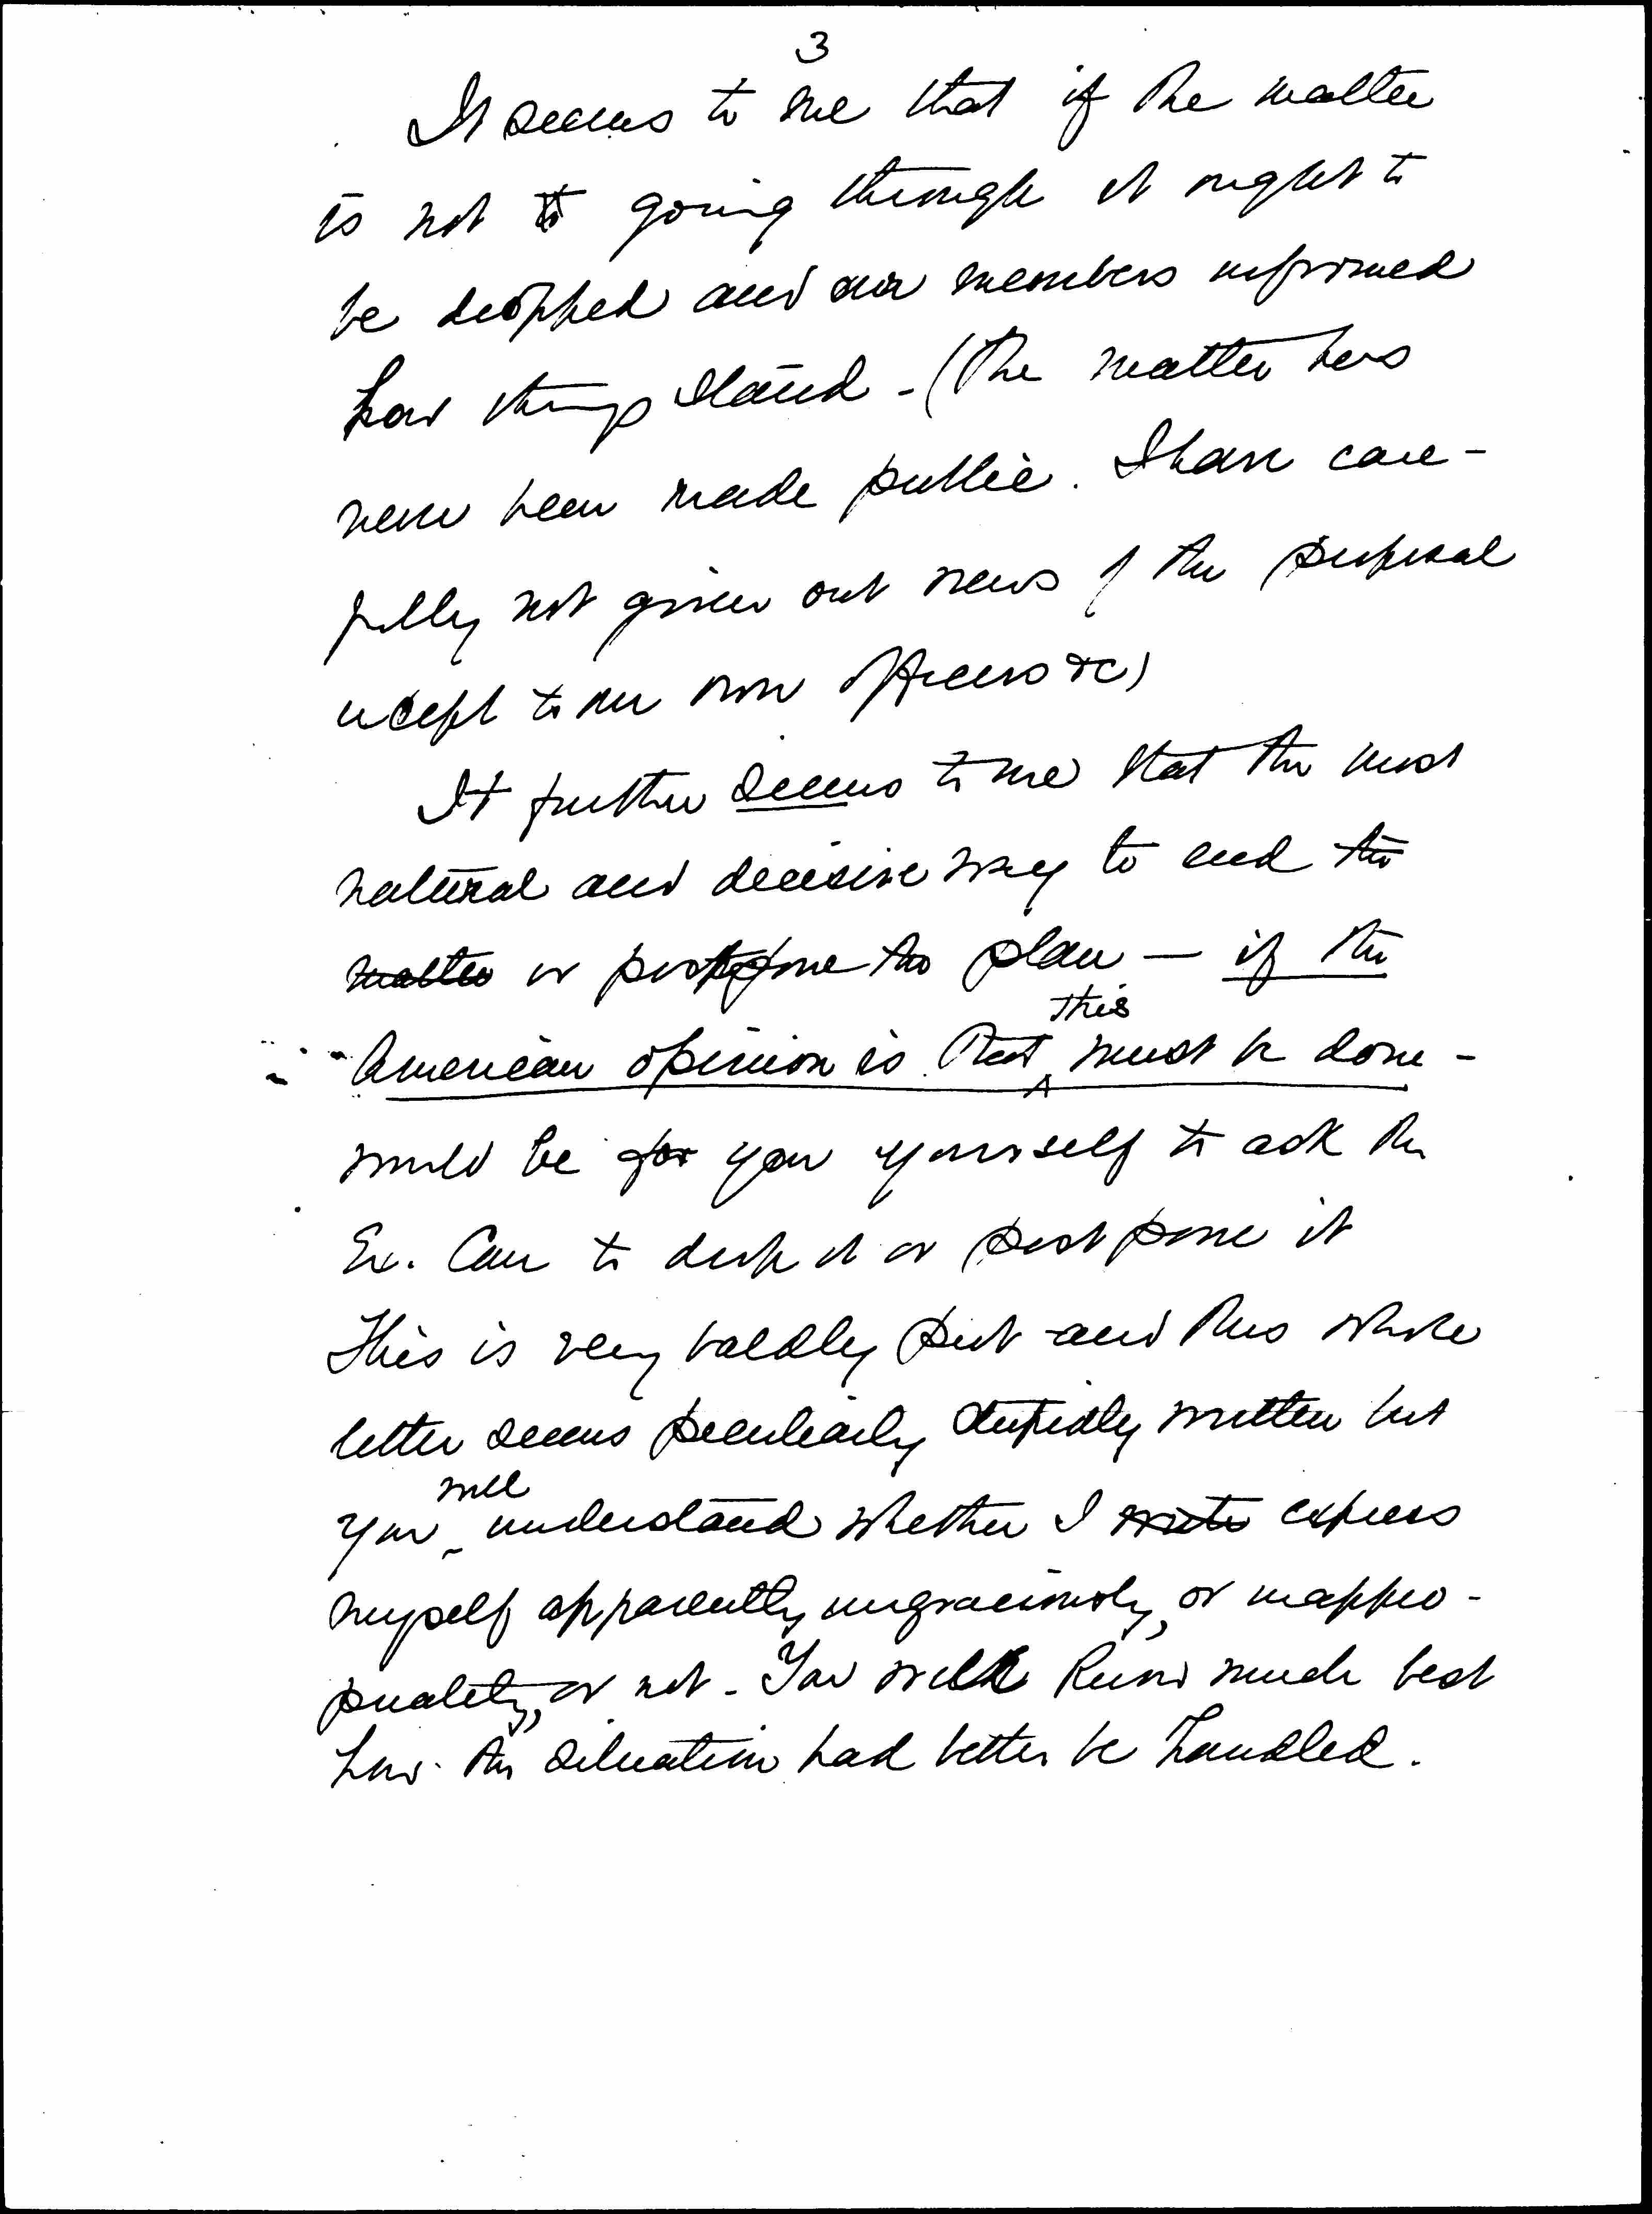 3
It seems to me that if the matter
is not to going through it ought to
be dropped and our members informed
how things stand - (The matter has
never been made public. I have care-
fully not given out news of the proposal
except to our own officers &c)
It further seems to me that the most
natural and decisive way to end the
matter or postpone the plan — if the
American opinion is that this must be done -
would be for you yourself to ask the
Ex. Com to drop it or postpone it
This is very baldly put and this whole
letter seems peculiarly stupidly written but
you will understand whether I write express
myself apparently ungraciously, or inappro-
priately, or not - You will know much best
how the situation had better be handled.